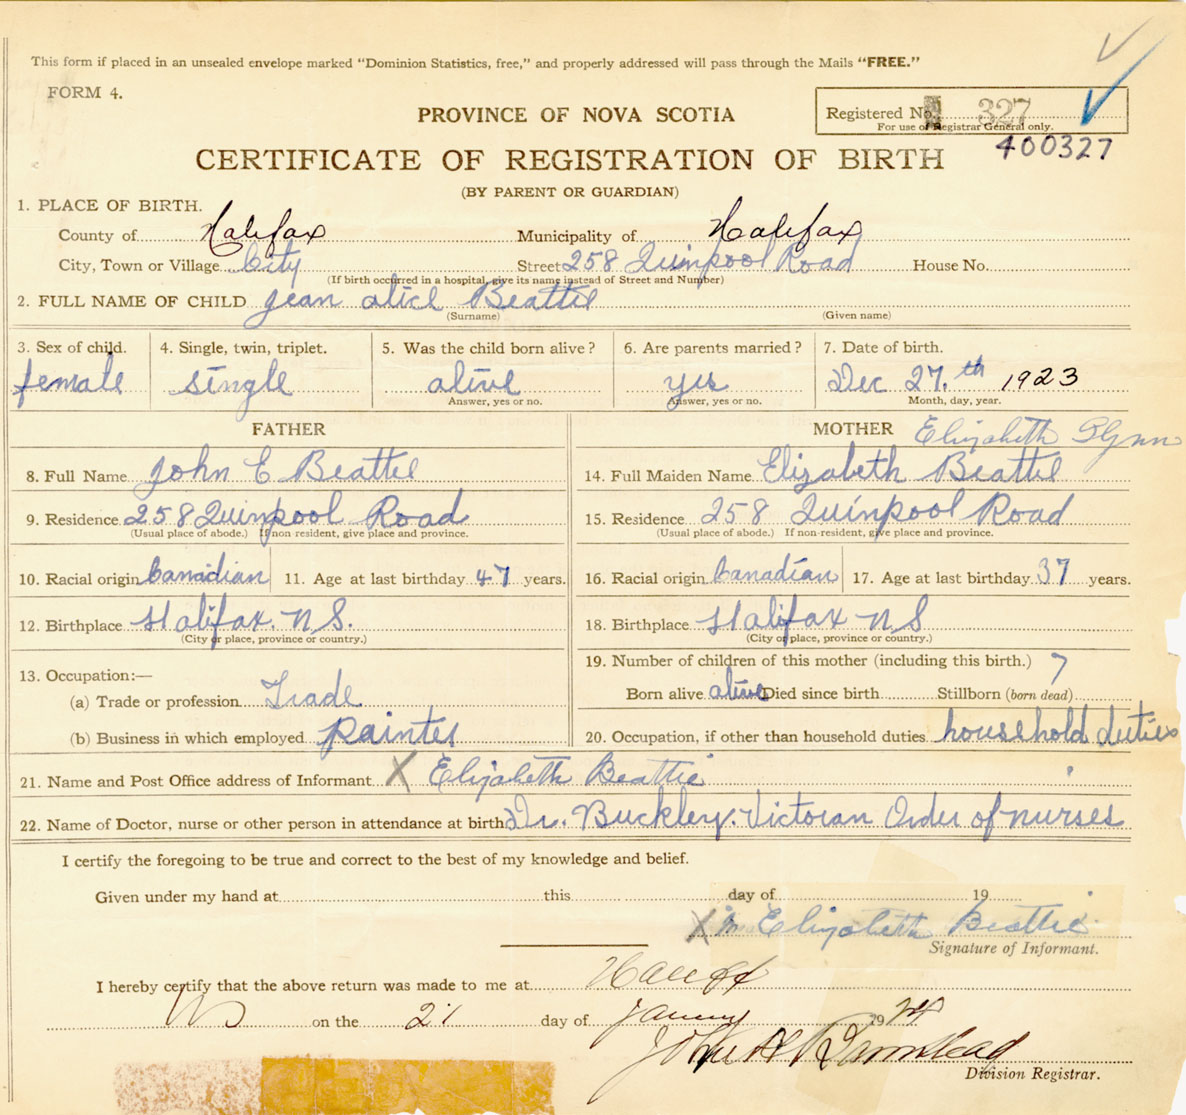 This form if placed in an unsealed envelope marked "Dominion Statistics, free," and properly addressed will pass through the Mails "FREE."
FORM 4.
PROVINCE OF NOVA SCOTIA
Registered No. 327
For use of Registrar General only.
400327
CERTIFICATE OF REGISTRATION OF BIRTH
(BY PARENT OR GUARDIAN)
1. PLACE OF BIRTH.
County of Halifax Municipality of Halifax
City, Town or Village City Street 258 Quinpool Road House No.
(If birth occurred in a hospital, give its name instead of Street and Number)
2. FULL NAME OF CHILD Jean Alice Beattie
(Surname) (Given name)
3. Sex of child. 4. Single, twin, triplet. 5. Was the child born alive? 6. Are parents married? 7. Date of birth.
female single alive yes Dec 27.th 1923
Answer, yes or no. Answer, yes or no. Month, day, year.
FATHER MOTHER Elizabeth Glynn
8. Full Name John E Beattie 14. Full Maiden Name Elizabeth Beattie
9. Residence 258 Quinpool Road 15. Residence 258 Quinpool Road
(Usual place of abode.) If non resident, give place and province. (Usual place of abode.) If non-resident, give place and province.
10. Racial origin Canadian 11. Age at last birthday 47 years. 16. Racial origin Canadian 17. Age at last birthday 37 years.
12. Birthplace Halifax. N.S. 18. Birthplace Halifax N S
(City or place, province or country.) (City or place, province or country.)
13. Occupation:— 19. Number of children of this mother (including this birth.) 7
(a) Trade or profession Trade Born alive alive Died since birth Stillborn (born dead)
(b) Business in which employed Painter 20. Occupation, if other than household duties household duties
21. Name and Post Office address of Informant X Elizabeth Beattie
22. Name of Doctor, nurse or other person in attendance at birth Dr. Buckley. Victorian Order of nurses
I certify the foregoing to be true and correct to the best of my knowledge and belief.
Given under my hand at this day of 19
X Elizabeth Beattie
Signature of Informant.
I hereby certify that the above return was made to me at Halifax
NS on the 21 day of January 1924
John A
Division Registrar.